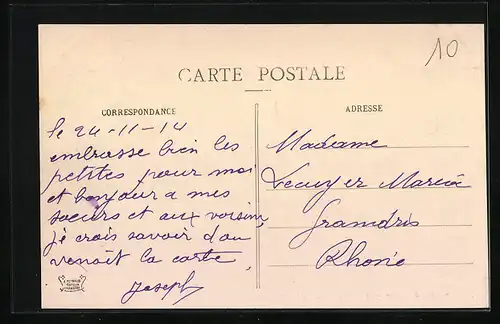 10
CARTE POSTALE
CORRESPONDANCE
le 24-11-14
embrasse bien les
petites pour moi
et bonjour a mes
soeurs et aux voisins
je crois savoir d'ou
venait la carte
Joseph
ADRESSE
Madame
Grandris
Rhone